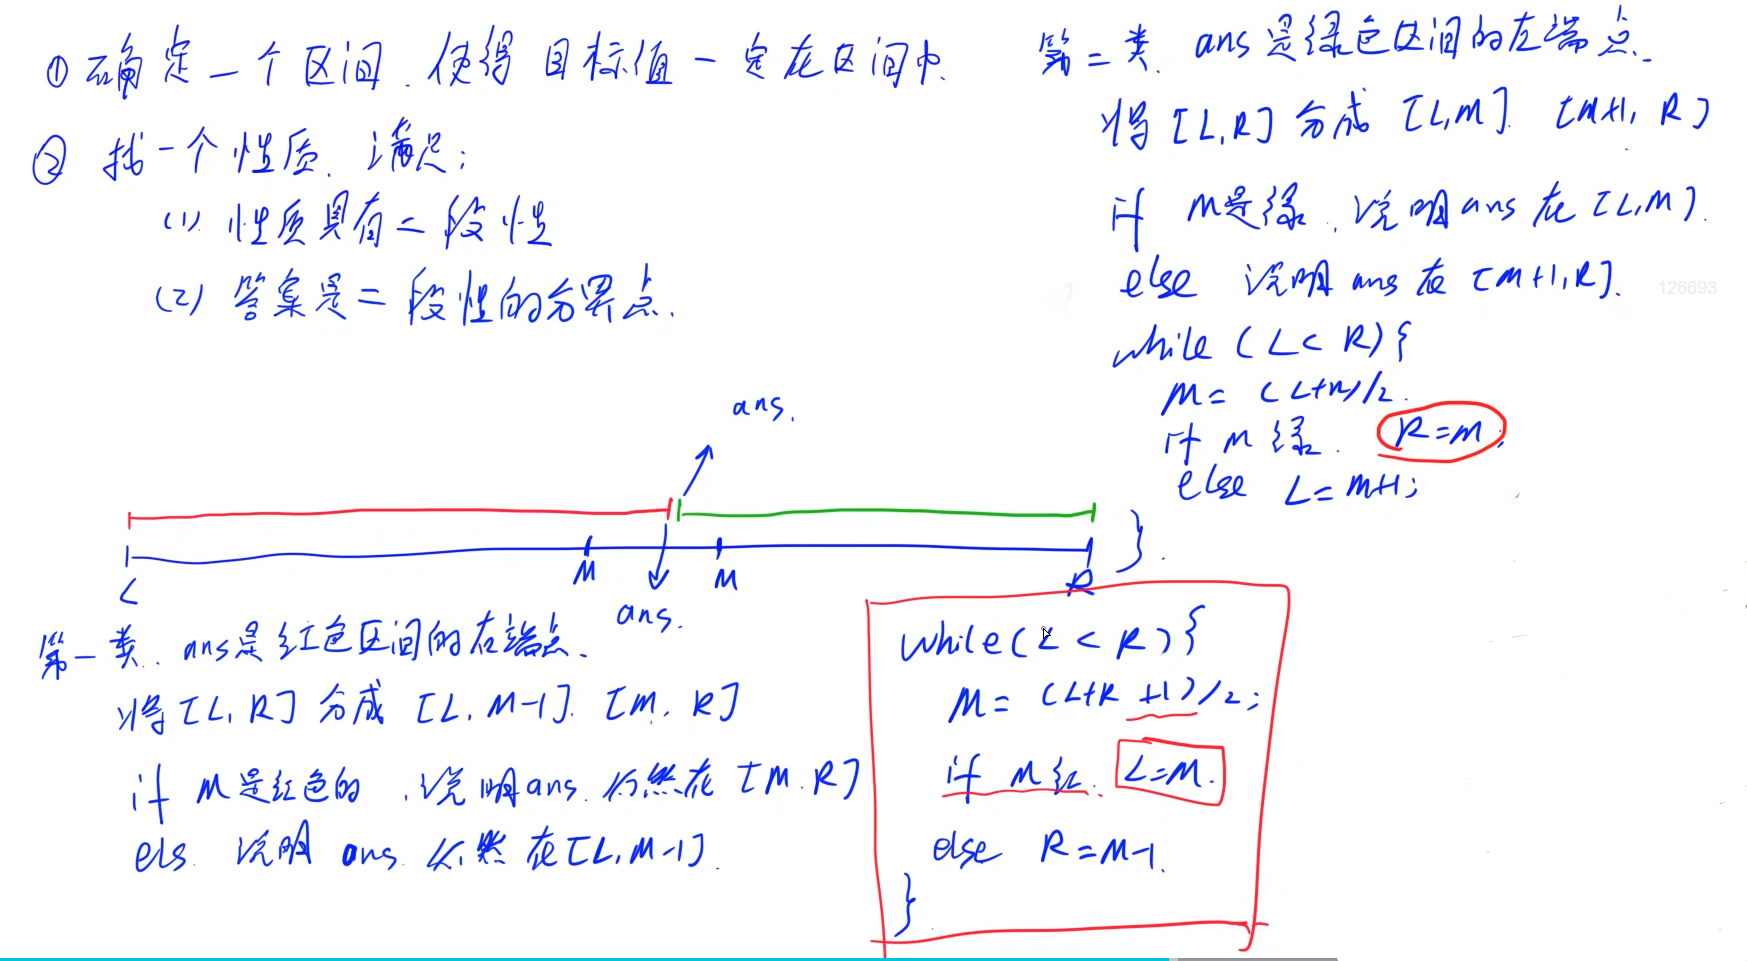 ① 确定一个区间, 使得目标值一定在区间中
② 找一个性质, 满足:
(1) 性质具有二段性
(2) 答案是二段性的分界点.
ans.
L
M
M
R
ans.
第一类. ans是红色区间的右端点.
将[L, R] 分成 [L, M-1]. [M, R]
if M是红色的, 说明ans 仍然在 [M, R]
els 说明 ans 必然在[L, M-1].
while (L < R) {
M = (L+R +1)/2;
if M 红. L=M.
else R=M-1.
}
第二类. ans是绿色区间的左端点.
将 [L,R] 分成 [L,M]. [M+1, R]
if M是绿, 说明ans 在 [L,M].
else 说明 ans 在 [M+1,R].
while (L < R) {
M = (L+R)/2.
if M 绿. R=M;
else L=M+1;
}.
126693